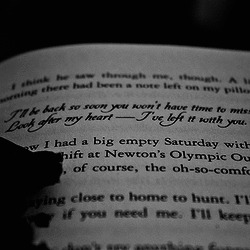 I think he saw through me, though. A
morning there had been a note left on my pillo
I'll be back so soon you won't have time to miss
Look after my heart — I've left it with you.
ow I had a big empty Saturday with
shift at Newton's Olympic Ou
, of course, the oh-so-comfo
ying close to home to hunt. I'l
if you need me. I'll keep